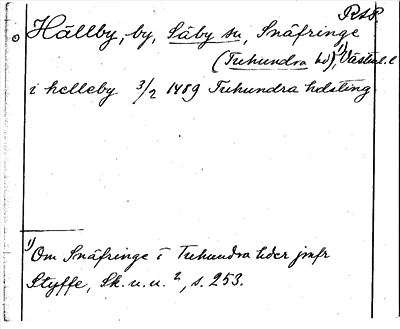 RAP
Hällby, by, Säby sn, Snäfringe
(Tuhundra hd)¹⁾, Västml. l
i helleby 3/2 1489 Tuhundra hdsting
1) Om Snäfringe i Tuhundra hder jmfr
Styffe, Sk. u. u. 2, s. 253.